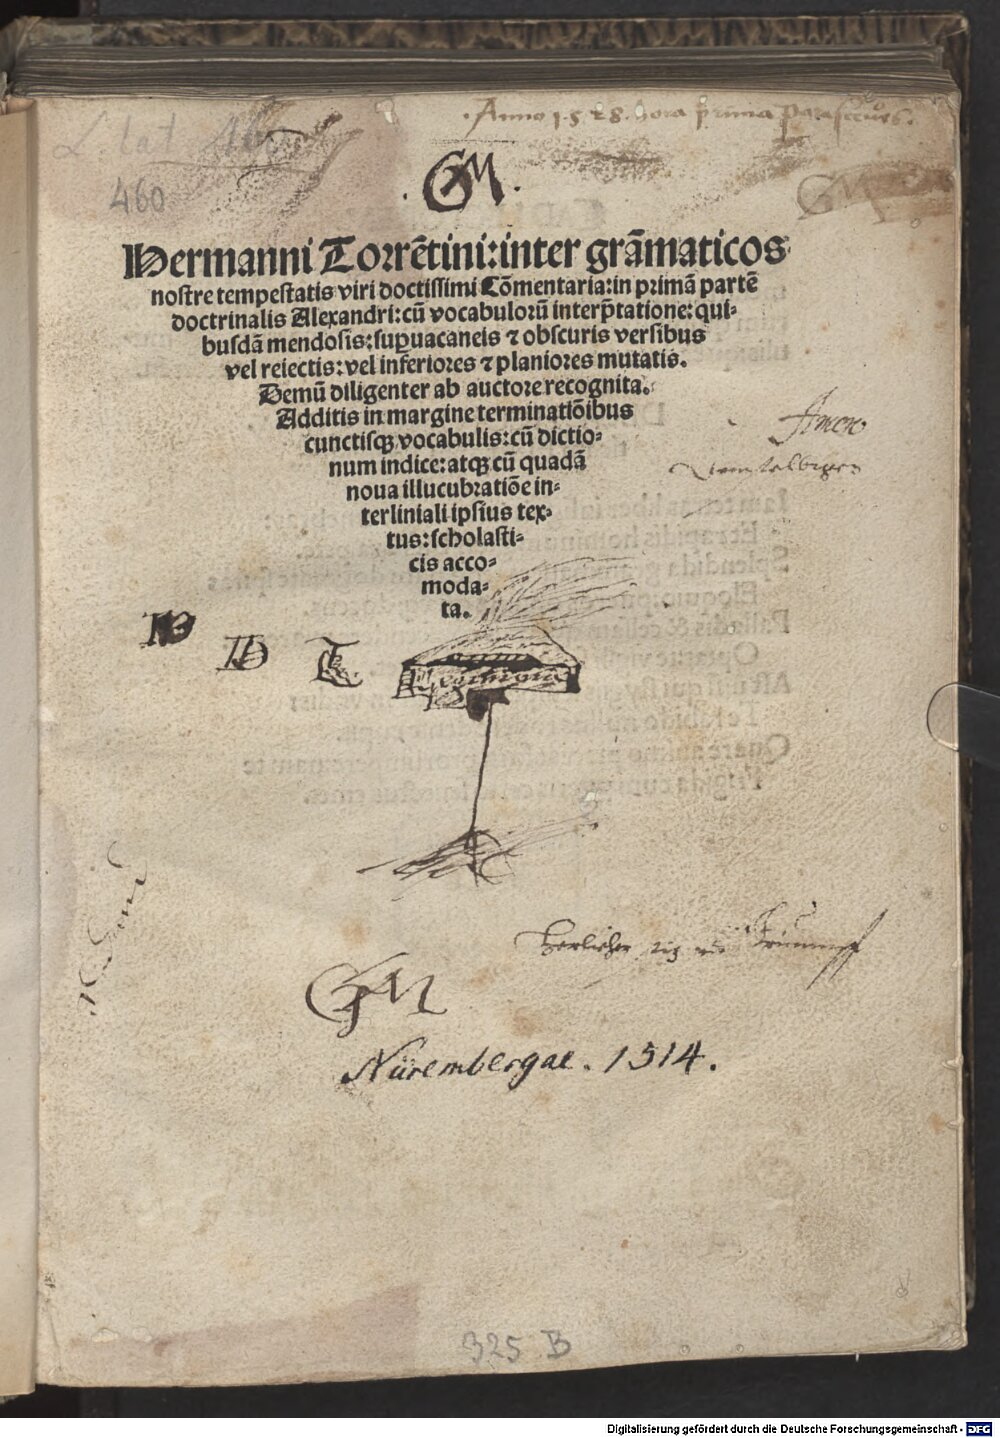 L. lat.
460
Anno 1.5.28. hora prima parasceues.
GM
Hermanni Torrētini: inter grāmaticos
nostre tempestatis viri doctissimi Cōmentaria: in primā partē
doctrinalis Alexandri: cū vocabulorū interp̄tatione: qui-
busdā mendosis: suꝑuacaneis ⁊ obscuris versibus
vel reiectis: vel inferiores ⁊ planiores mutatis.
Demū diligenter ab auctore recognita.
Additis in margine terminatiōibus
cunctisqꝫ vocabulis: cū dictio-
num indice: atqꝫ cū quadā
noua illucubratiōe in-
terliniali ipsius tex-
tus: scholasti-
cis acco-
moda-
ta.
Amen
GM
Nürembergae. 1514.
325 B
Digitalisierung gefördert durch die Deutsche Forschungsgemeinschaft - DFG